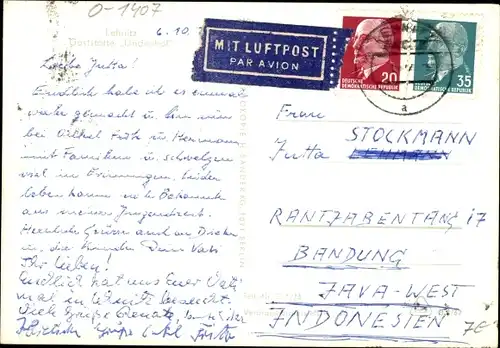 O-1407
6.10.
Lehnitz
Gaststätte „Lindenhof"
MIT LUFTPOST
PAR AVION
20
DEUTSCHE
DEMOKRATISCHE REPUBLIK
35
DEUTSCHE
DEMOKRATISCHE REPUBLIK
a
Liebe Jutta!
Endlich habe ich es einmal
wahr gemacht u. bin nun
bei Onkel
mit Familien u. schwelgen
viel in Erinnerungen. Leider
leben kaum noch Bekannte
aus meiner Jugendzeit.
Herzliche Grüsse auch an
u. die Kinder Dein Vati
Ihr Lieben!
Endlich hat uns Euer Vati
mal in Lehnitz besucht.
Viele Grüße Renate,
Herzliche Grüße Onkel
Frau
STOCKMANN
Jutta LEHMANN
RANTJABENTANG 17
BANDUNG
JAVA-WEST
INDONESIEN